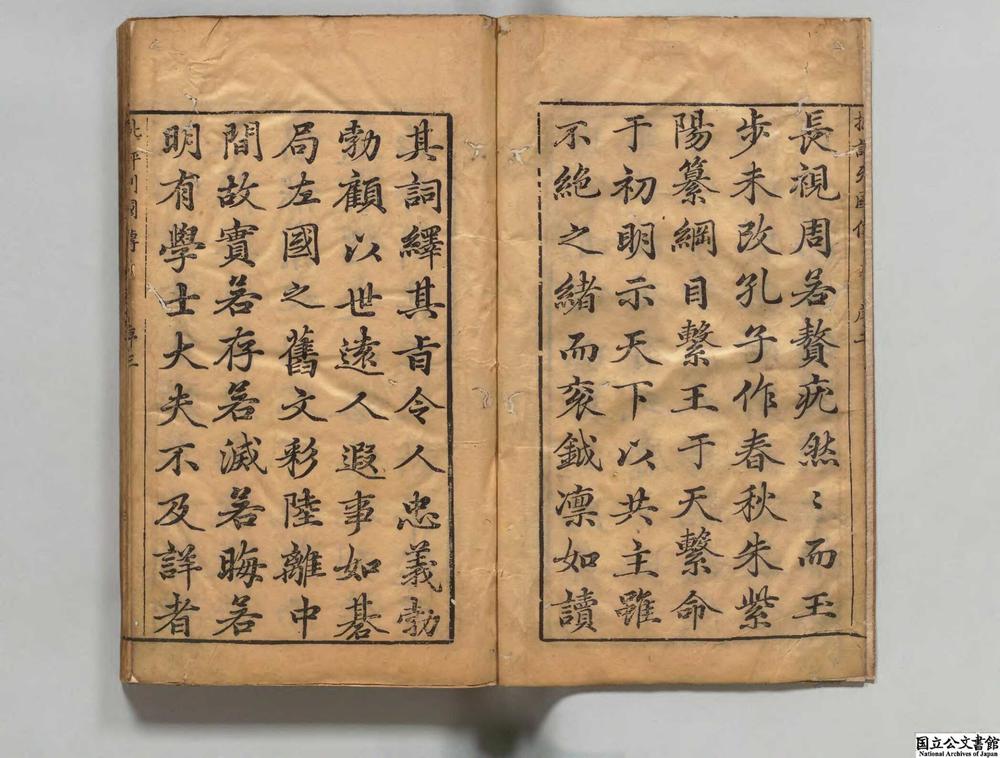 長視周若贅疣然〻而玉
步未改孔子作春秋朱紫
陽纂綱目繫王于天繫命
于初明示天下以共主雖
不絶之緒而衮鉞凛如讀
其詞繹其旨令人忠義勃
勃顧以世遠人遐事如碁
局左國之舊文彩陸離中
間故實若存若滅若晦若
明有學士大夫不及詳者
序三
国立公文書館
National Archives of Japan